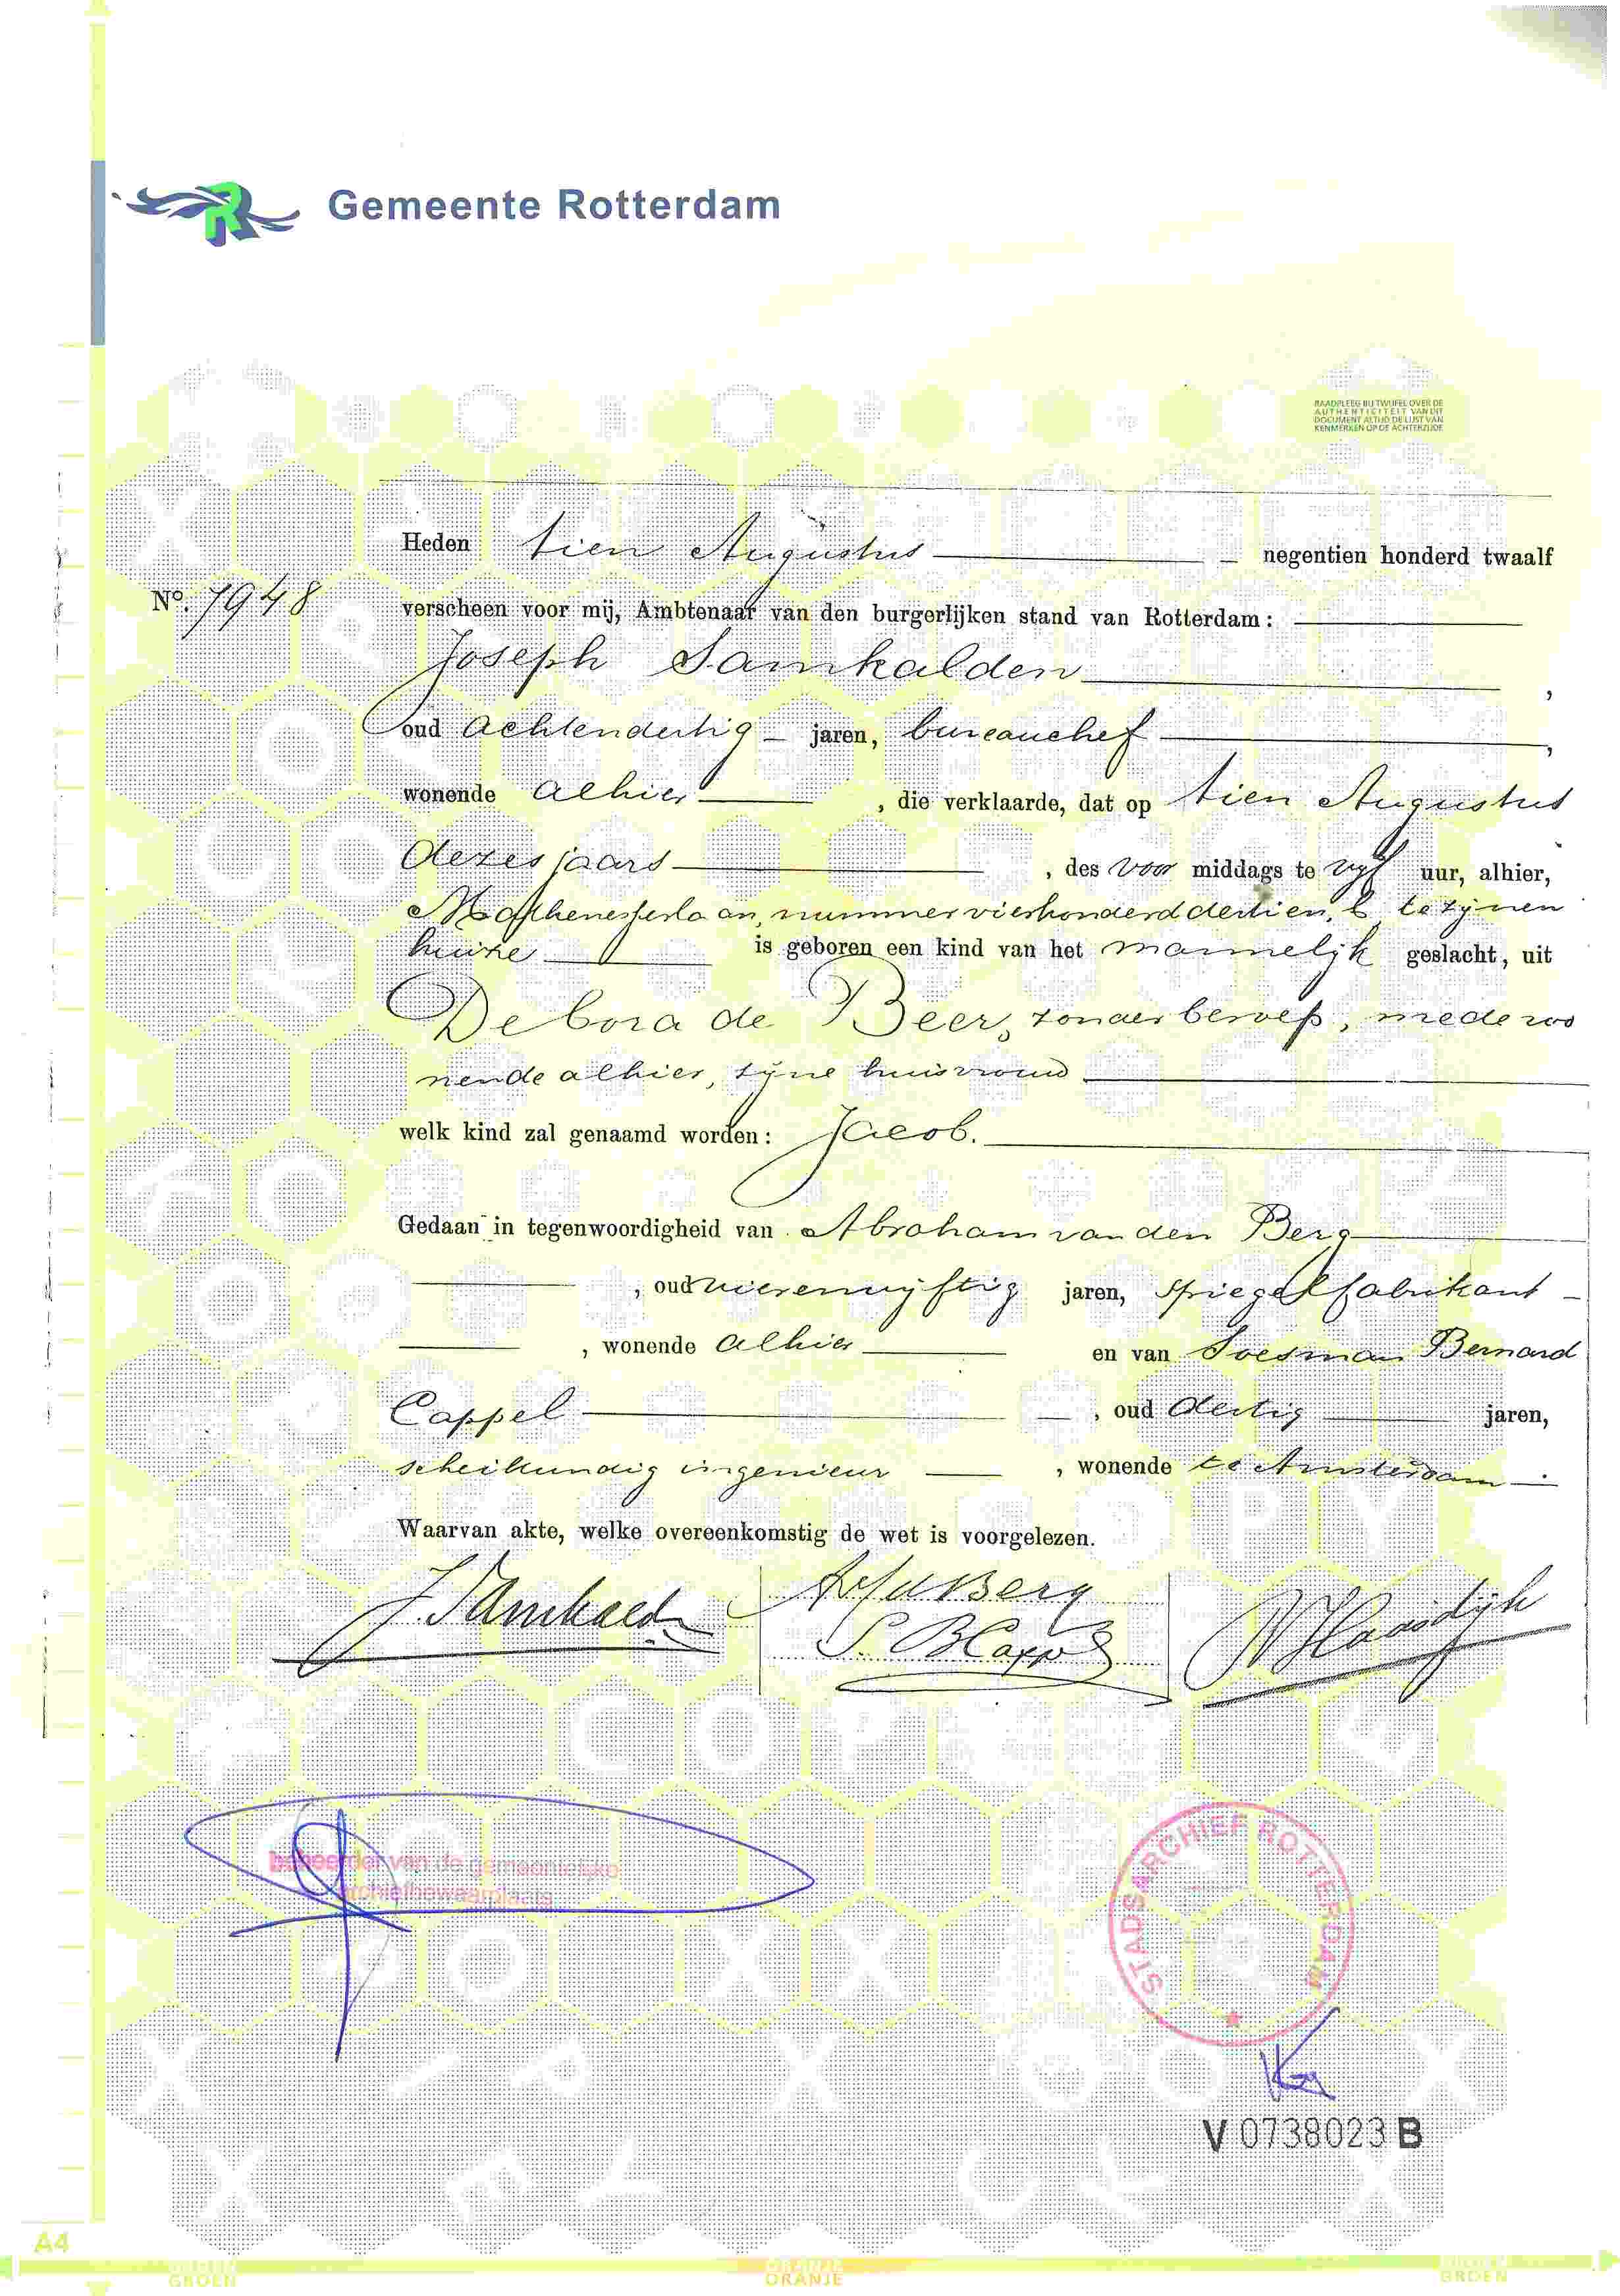 Gemeente Rotterdam
RAADPLEEG BIJ TWIJFEL OVER DE
AUTHENTICITEIT VAN DIT
DOCUMENT ALTIJD DE LIJST VAN
KENMERKEN OP DE ACHTERZIJDE
Heden tien Augustus negentien honderd twaalf
No. 7948 verscheen voor mij, Ambtenaar van den burgerlijken stand van Rotterdam:
Joseph Samkalden,
oud achtendertig jaren, bureauchef,
wonende alhier, die verklaarde, dat op tien Augustus
dezes jaars, des voor middags te vijf uur, alhier,
Mathenesserlaan, nummer vierhonderd dertien, b, te zijnen
huize is geboren een kind van het mannelijk geslacht, uit
Debora de Beer, zonder beroep, mede wo
nende alhier, zijne huisvrouw
welk kind zal genaamd worden: Jacob.
Gedaan in tegenwoordigheid van Abraham van den Berg
, oud vierenvijftig jaren, spiegelfabrikant
, wonende alhier en van Soesman Bernard
Cappel, oud dertig jaren,
scheikundig ingenieur, wonende te Amsterdam.
Waarvan akte, welke overeenkomstig de wet is voorgelezen.
J Samkalden
AvdBerg
S. BCappel
beheerder van de gemeentelijke
archiefbewaarplaats
STADSARCHIEF ROTTERDAM
V 0738023 B
A4
GROEN
ORANJE
GROEN